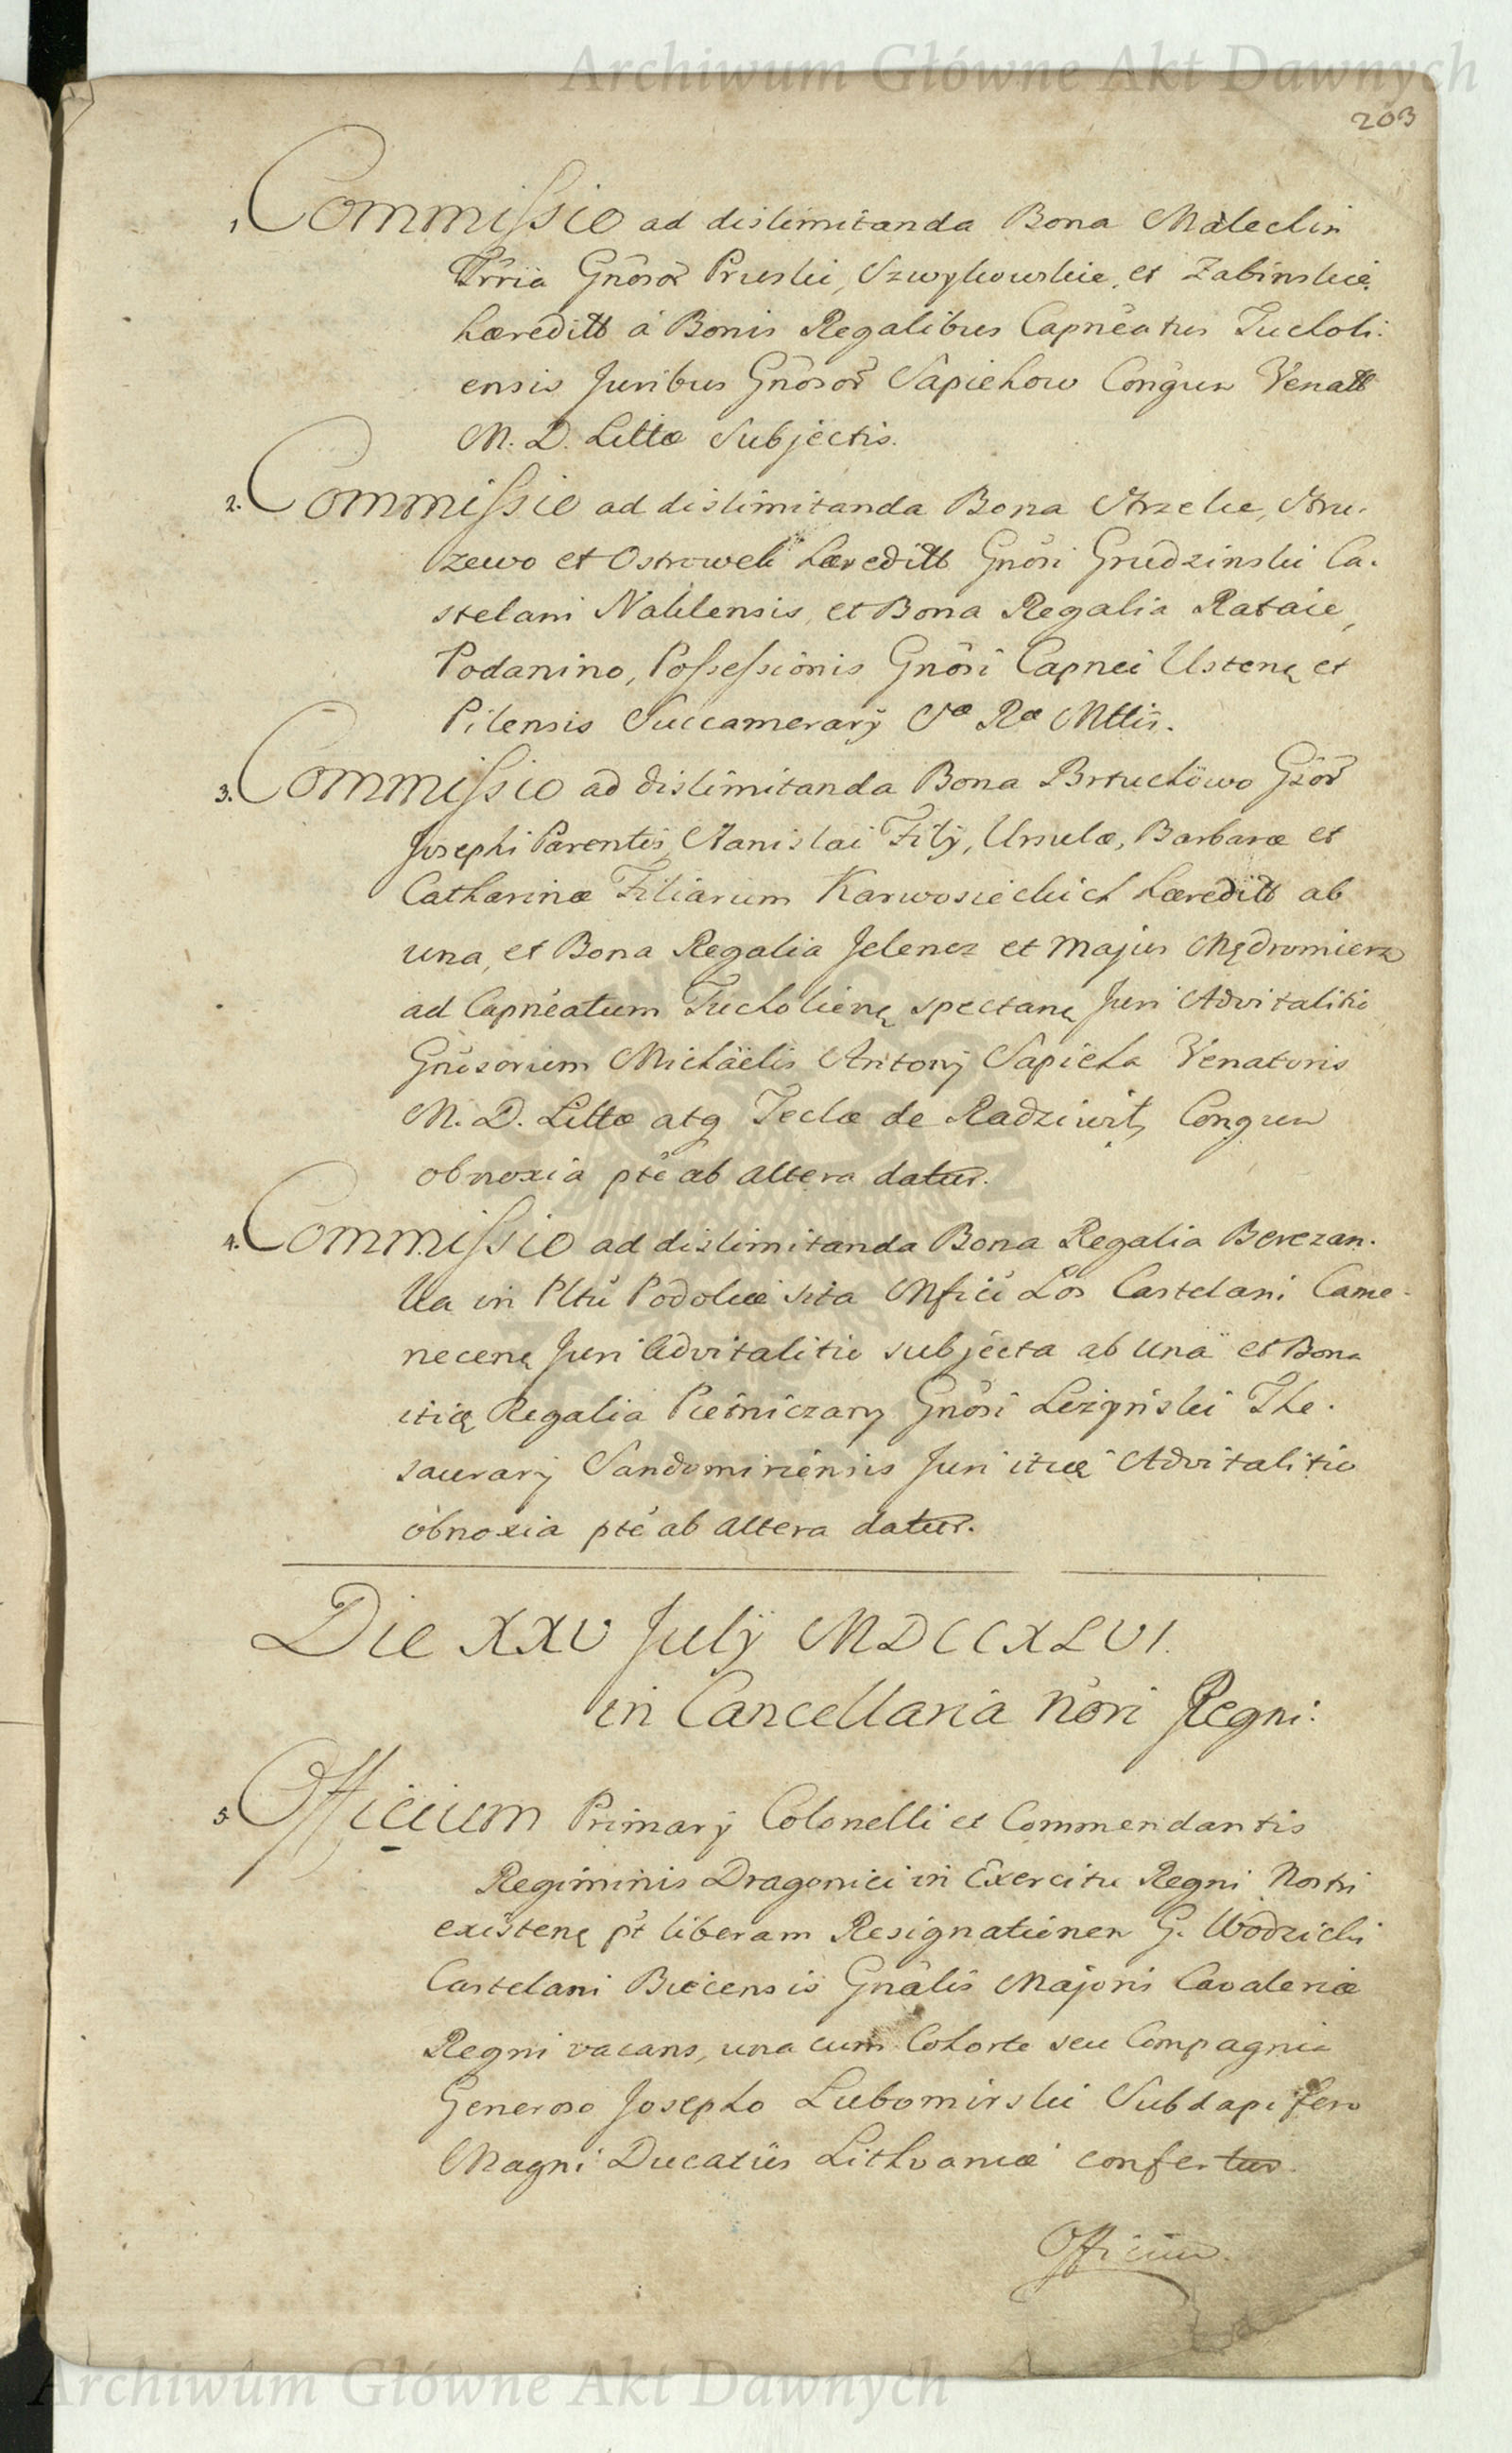 Archiwum Główne Akt Dawnych
203
1. Commissio ad dislimitanda Bona Maleclin
Trria Gnosor Pruski, Szwykowskie, et Zabinskie
hæreditt à Bonis Regalibus Capneatus Tucholi:
ensis Juribus Gnosor Sapiehow Congum Venatt
M. D. Littæ Subjectis.
2. Commissio ad dislimitanda Bona Strzelce, Stru.
zewo et Ostrowek hæreditt Gnosi Grudzinski Ca.
stelani Naklensis, et Bona Regalia Rataie,
Podanino, Possessionis Gnosi Capnei Ustenę et
Pilensis Succamerarÿ Sæ Ræ Mttis.
3. Commissio ad dislimitanda Bona Brtuchowo Gsor
Josephi Parentis, Stanislai Filÿ, Ursulæ, Barbaræ et
Catharinæ Filiarum Karwosieckich hæreditt ab
una, et Bona Regalia Jelencz et Majus Mędromierz
ad Capneatum Tucholienę spectanę Juri Advitalitio
Gnosorum Michäelis Antonÿ Sapieha Venatoris
M. D. Littæ atq Teclæ de Radziwił Congum
obnoxia pte ab altera datur.
4. Commissio ad dislimitanda Bona Regalia Berezan.
ka in Pltu Podoliæ sita Mfici Los Castelani Came-
necenę Juri Advitalitio subjecta ab una et Bona
itię Regalia Pietniczany Gnosi Leżyński The.
saurarÿ Sandomiriensis Juri itię Advitalitio
obnoxia pte ab altera datur.
Die XXV Julÿ MDCCXLVI.
in Cancellaria Nori Regni:
5. Officium Primarÿ Colonelli et Commendantis
Regiminis Dragonici in Exercitu Regni Nostri
existenę pt liberam Resignationem G. Wodzicki
Castelani Biecensis Gnalis Majoris Cavaleriæ
Regni vacans, una cum Cohorte seu Compagnia
Generoso Josepho Lubomirski Subdapifero
Magni Ducatûs Lithvaniæ confertur.
Officium
Archiwum Główne Akt Dawnych